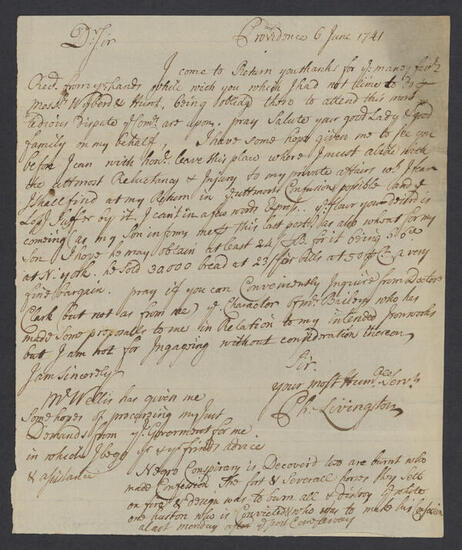 Providence 6 June 1741
Dr Sir
I come to Return you thanks for ye many favrs
Recd from yr hands while with you which I had not time to do
Messrs Wibberd & Hunt, being obliged there to attend this most
tedious dispute ye Comrs are upon. pray Salute your good Lady & good
family in my behalf, I have some hope given me to see you
before I can with honr leave this place where I must abide with
the uttmost Reluctancy & Injury to my private affairs wch I fear
I shall find at my Return in ye uttmost Confusion possible (and ye
Suffer by it. I cant in a few words Express ye flour you desird is
coming as my Son informs me this last post has also wheat for my
Son I hope he may obtain at least 24/ for it being
at N. york. he sold 30000 bread at 23/ bills at 50 a very
fine bargain. pray if you can Conveniently Inquire from Doctor
Clark but not as from me ye Character of Mr Bailey who has
made Some proposalls to me in Relation to my intended Ironworks
but I am not for Ingageing without consideration thereon
I am Sincerely
Sir
your most Humble Servt
Ph: Livingston
Mr Wellis has given me
Some hopes of procuring my just
Demands from ye Goverment for me
in which I beg yr & yr friends advice
& assistance
Negro Conspiracy is Decoverd two are burnt who
made Confession. The fort & Severall houses they Sett
on fire & design was to burn all & distroy ye white
one huston who is Convicted & who was to make his Confession
alast monday